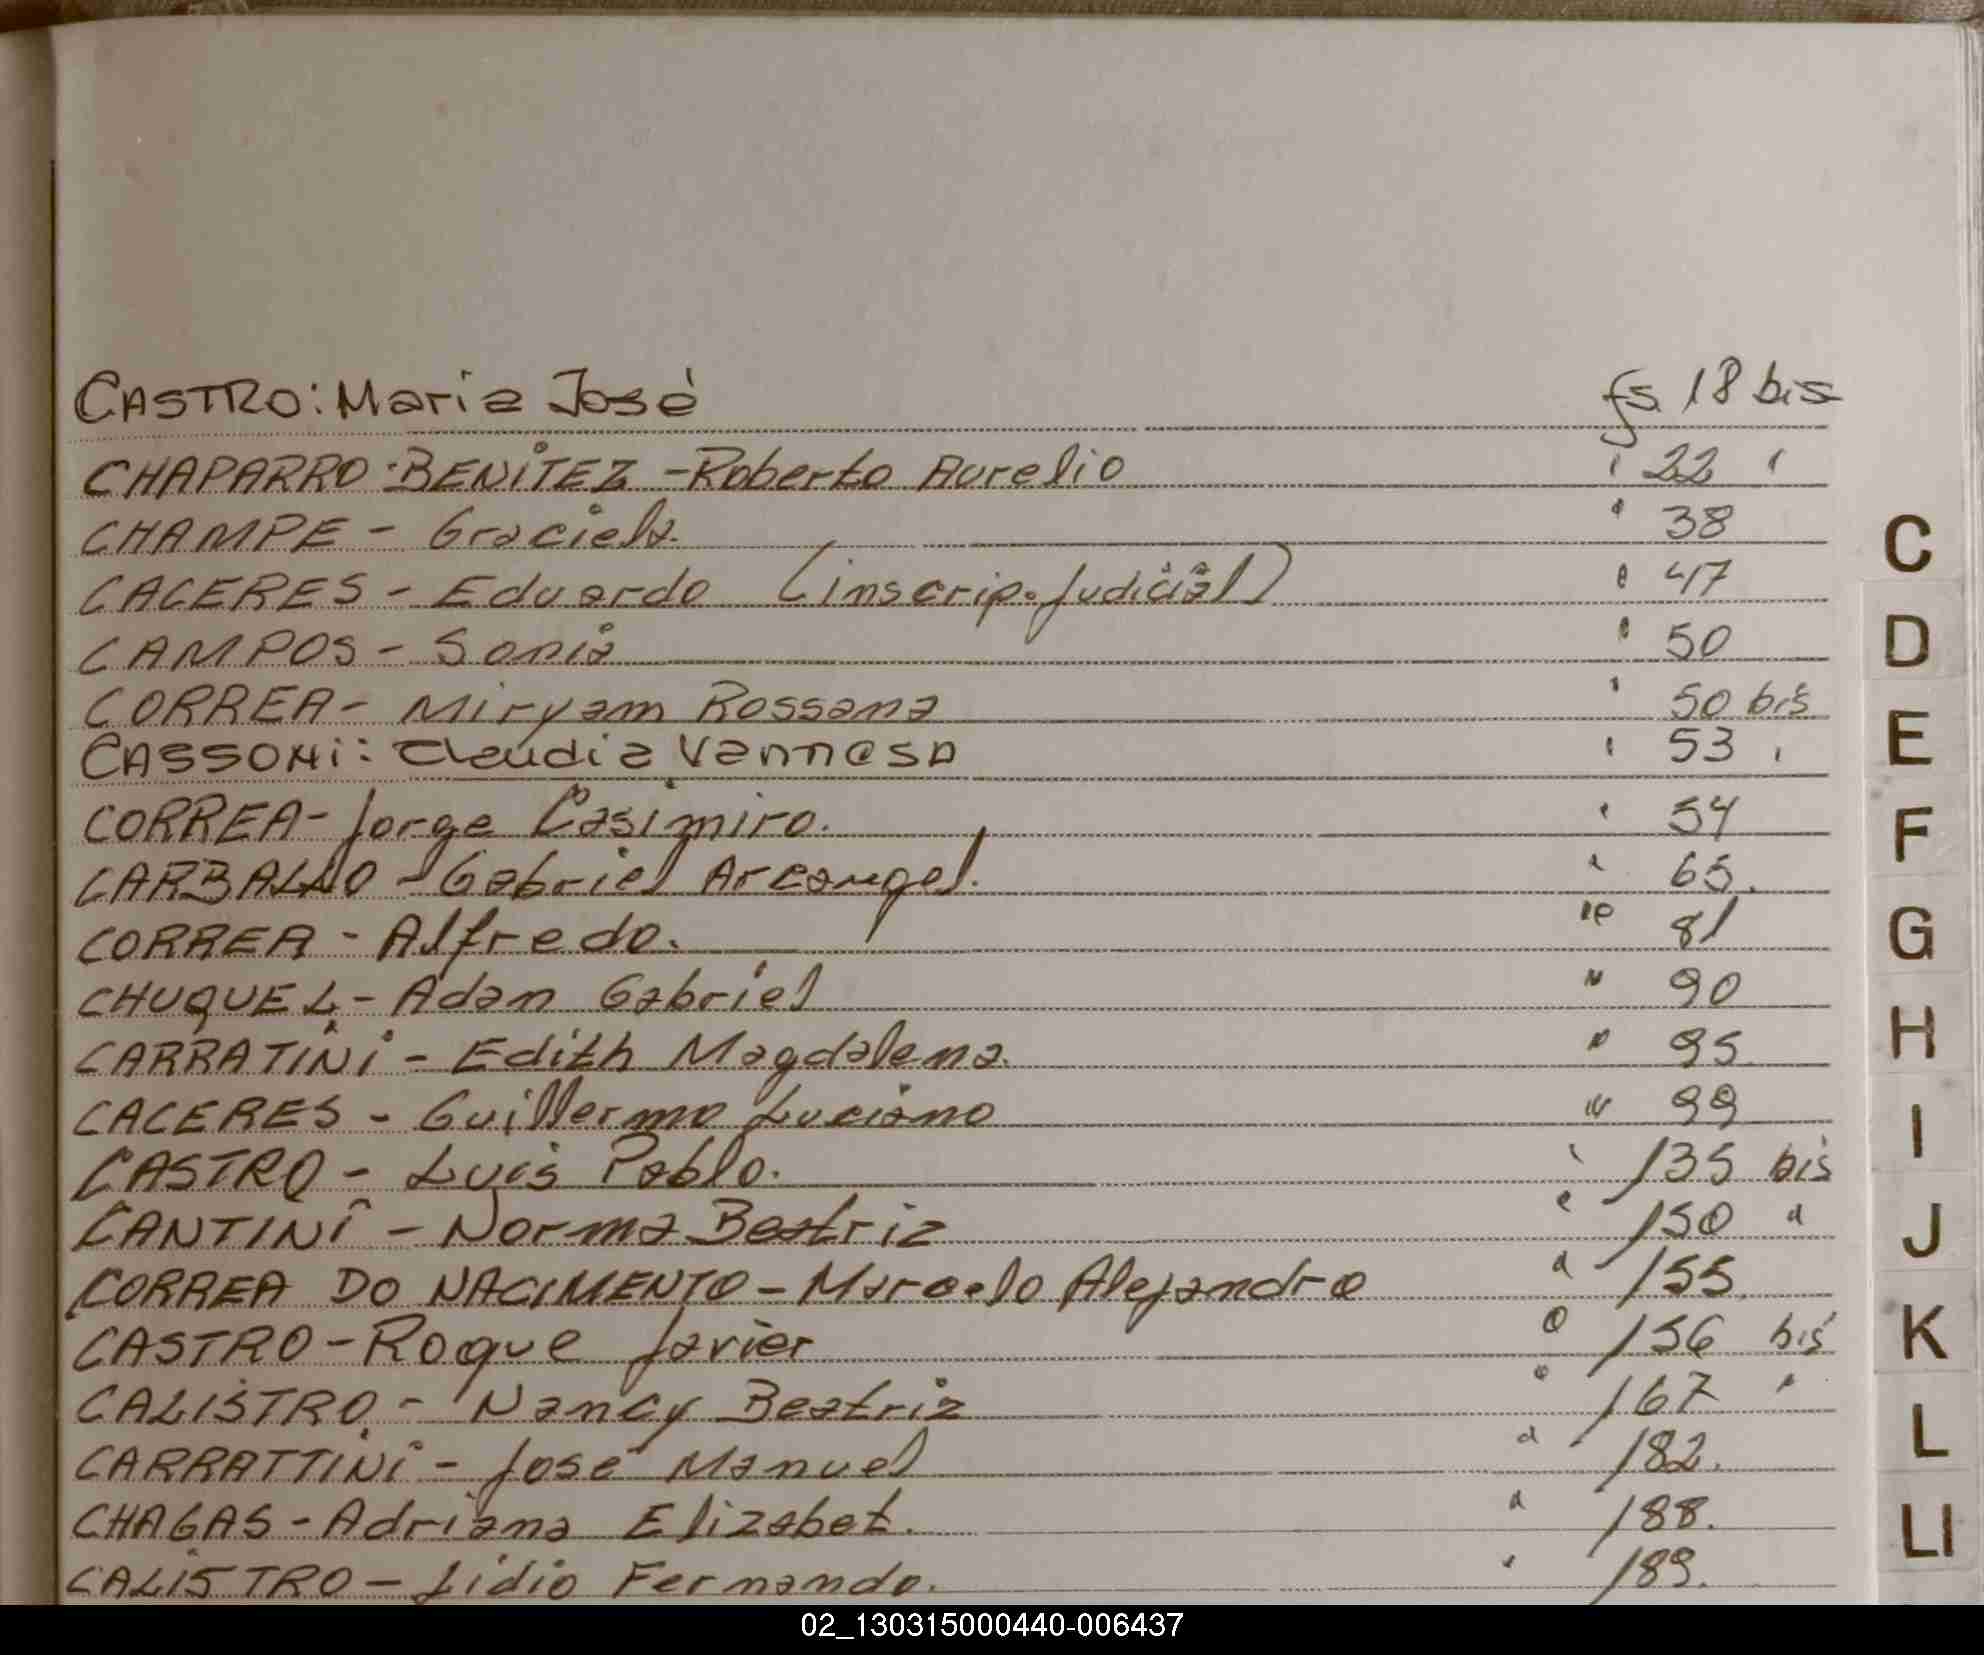 CASTRO: Maria José fs. 18 bis
CHAPARRO BENITEZ - Roberto Aurelio " 22 "
CHAMPE - Graciela. " 38
CACERES - Eduardo (inscrip. Judicial) " 47
CAMPOS - Sonia " 50
CORREA - Miryam Rossana " 50 bis
CASSONi: Claudia Vannesa " 53 "
CORREA - Jorge Casimiro. " 54
CARBALLO - Gabriel Arcangel. " 65.
CORREA - Alfredo. " 81
CHUQUEL - Adan Gabriel " 90
CARRATINi - Edith Magdalena. " 95
CACERES - Guillermo Luciano " 99
CASTRO - Luis Pablo. " 135 bis
CANTINi - Norma Beatriz " 150 "
CORREA DO NACIMENTO - Marcelo Alejandro " 155.
CASTRO - Roque Javier " 156 bis
CALISTRO - Nancy Beatriz " 167 "
CARRATTINi - José Manuel " 182.
CHAGAS - Adriana Elizabet. " 188.
CALISTRO - Lidio Fernando. " 189.
C
D
E
F
G
H
I
J
K
L
Ll
02_130315000440-006437